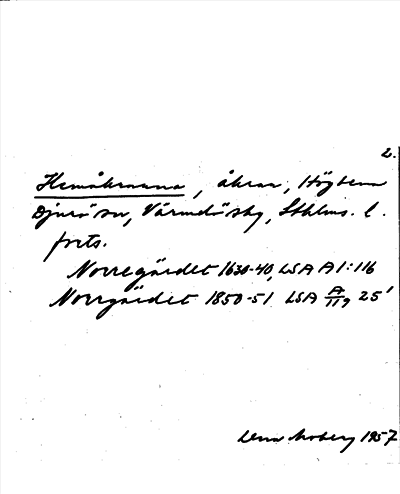 2.
Hemåkrarna, åkrar, Högbena
Djurö sn, Värmdö sbg, Sthlms. l.
forts.
Norregärdet 1630-40, LSA A1:116
Norrgärdet 1850-51 LSA A/119 25'
Lena Moberg 1957